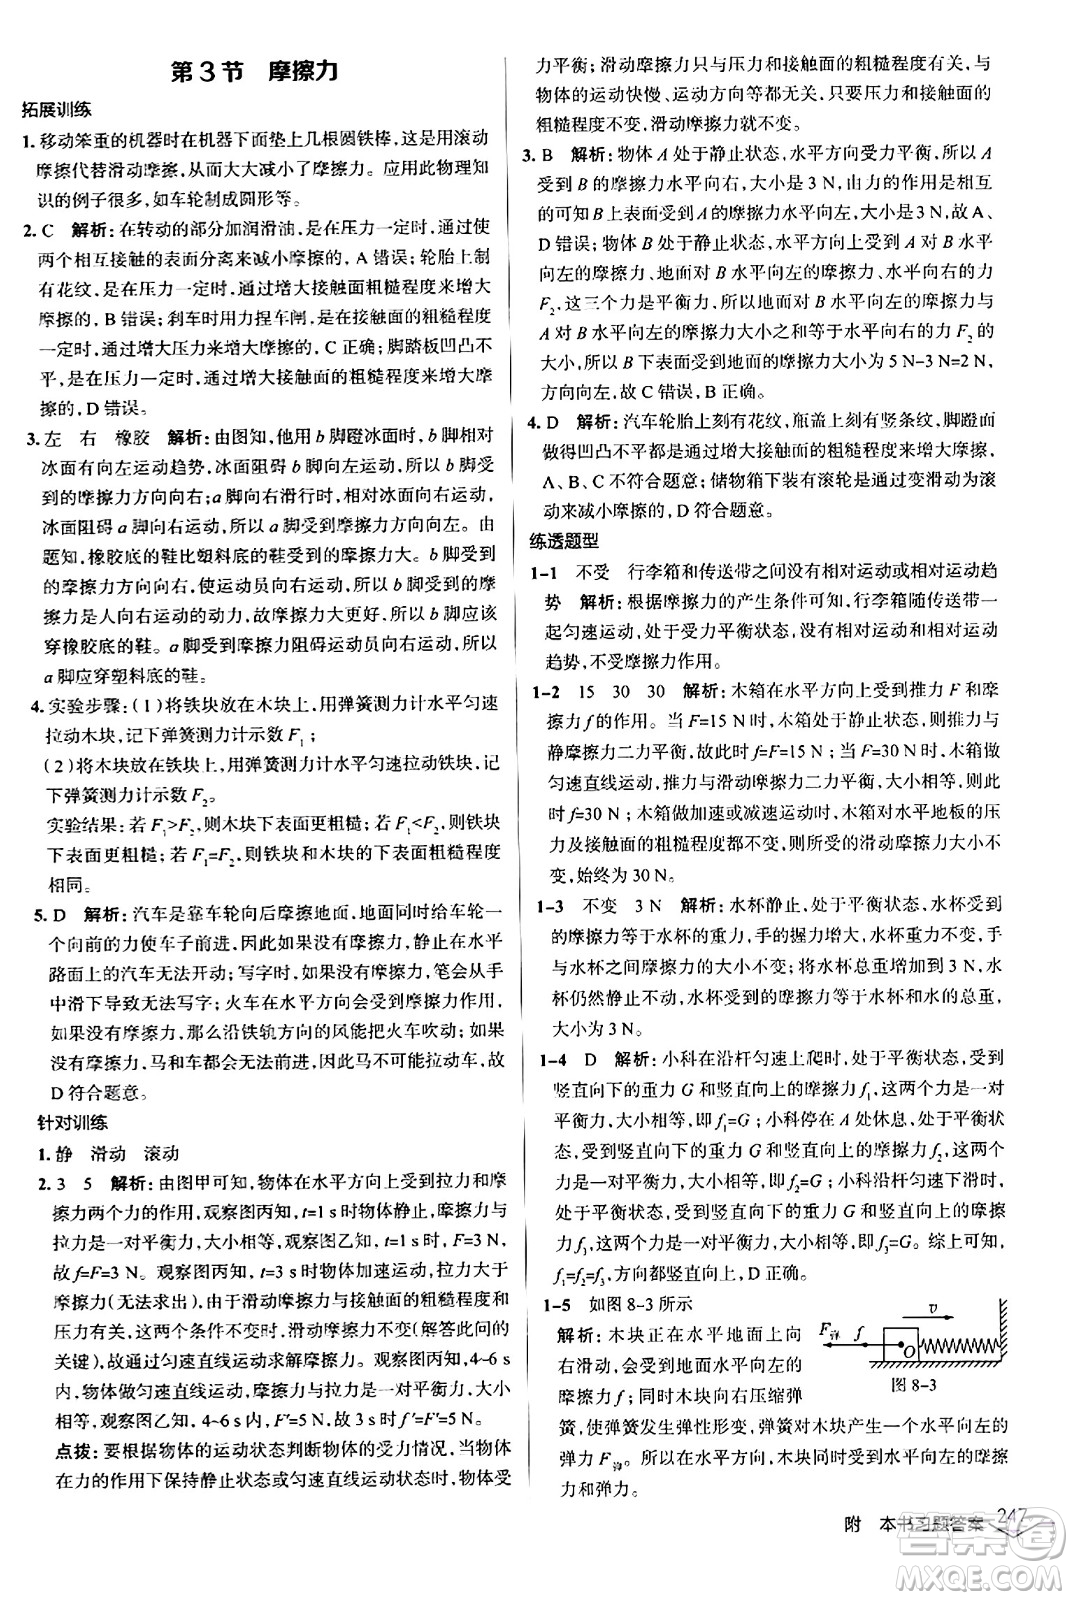 第3节　摩擦力
拓展训练
1. 移动笨重的机器时在机器下面垫上几根圆铁棒，这是用滚动
摩擦代替滑动摩擦，从而大大减小了摩擦力。应用此物理知
识的例子很多，如车轮制成圆形等。
2. C　解析：在转动的部分加润滑油，是在压力一定时，通过使
相互接触的表面分离来减小摩擦的，A 错误；轮胎上制
有花纹，是在压力一定时，通过增大接触面粗糙程度增大
摩擦的，B 错误；刹车时用力捏车闸，是在接触面的粗糙程度
一定时，通过增大压力来增大摩擦的，C 正确；脚踏板凹凸不
平，是在压力一定时，通过增大接触面的粗糙程度来增大摩
擦的，D 错误。
3. 左　右　橡胶　解析：由图知，他用 b 脚蹬冰面时，b 脚相对
冰面有向左运动趋势，冰面阻碍 b 脚向左运动，所以 b 脚受
到的摩擦力方向向右；a 脚向右滑行时，相对冰面向右运动，
冰面阻碍 a 脚向右运动，所以 a 脚受到摩擦力方向向左。由
题知，橡胶底的鞋比塑料底的鞋受到的摩擦力大。b 脚受到
的摩擦力方向向右，使运动员向右运动，所以 b 脚受到的摩
擦力是人向右运动的动力，故摩擦力大更好，所以 b 脚应该
穿橡胶底的鞋。a 脚受到的摩擦力阻碍运动员向右运动，所
以 a 脚应穿塑料底的鞋。
4. 实验步骤：（1）将铁块放在木块上，用弹簧测力计水平匀速
拉动木块，记下弹簧测力计示数 F₁；
（2）将木块放在铁块上，用弹簧测力计水平匀速拉动铁块，记
下弹簧测力计示数 F₂。
实验结果：若 F₁>F₂，则木块下表面更粗糙；若 F₁<F₂，则铁块
下表面更粗糙；若 F₁=F₂，则铁块和木块的下表面粗糙程度
相同。
5. D　解析：汽车是靠车轮向后摩擦地面，地面同时给车轮一
个向前的力使车子前进，因此如果没有摩擦力，静止在水平
路面上的汽车无法开动；写字时，如果没有摩擦力，笔会从手
中滑下导致无法写字；火车在水平方向会受到摩擦力作用，
如果没有摩擦力，那么沿铁轨方向的风能把火车吹动；如果
没有摩擦力，马和车都无法前进，因此马不可能拉动车，故
D 符合题意。
针对训练
1. 静　滑动　滚动
2. 3　5　解析：由图甲可知，物体在水平方向上受到拉力和摩
擦力两个力的作用，观察图丙知，t=1 s时物体静止，摩擦力与
拉力是一对平衡力，大小相等，观察图乙知，t=1 s时，F=3 N，
故 f=F=3 N。观察图丙知，t=3 s时物体加速运动，拉力大于
摩擦力（无法求出），由于滑动摩擦力与接触面的粗糙程度、
压力有关，这两个条件不变时，滑动摩擦力不变（解答此问的
关键），故通过匀速直线运动求解摩擦力。观察图丙知，4~6 s
内，物体做匀速直线运动，摩擦力与拉力是一对平衡力，大小
相等，观察图乙知，4~6 s内，F′=5 N，故 f′=F′=5 N。
点拨：要根据物体的运动状态判断物体的受力情况，当物体
在力的作用下保持静止状态或匀速直线运动状态时，物体受
力平衡；滑动摩擦力只与压力和接触面的粗糙程度有关，与
物体的运动快慢、运动方向等无关，只要压力和接触面的
粗糙程度不变，滑动摩擦力就不变。
3. B　解析：物体 A 处于静止状态，水平方向受力平衡，所以 A
受到 B 的摩擦力水平向右，大小是 3 N，由力的作用是相互
的可知 B 上表面受到 A 的摩擦力大小是 3 N，方向向左，故 A、
D 错误；物体 B 处于静止状态，水平方向受力平衡，受到 A
向左的摩擦力、地面对 B 水平方向向左的摩擦力和向右的拉力
F₂，这三个力是平衡力，所以地面对 B 向左的摩擦力与
A 对 B 水平方向向左的摩擦力大小之和等于水平向右的力 F₂的
大小，所以 B 下表面受到地面的摩擦力大小是 5 N-3 N=2 N，
方向向左，故 C 错误，B 正确。
4. D　解析：汽车轮胎上刻有花纹，瓶盖上刻有竖条纹，脚蹬面
做得凹凸不平都是通过增大接触面粗糙程度来增大摩擦，
A、B、C 不符合题意；储物箱下装有滚轮是通过变滑动为滚
动来减小摩擦的，D 符合题意。
练透题型
1-1　不受　行李箱和传送带之间没有相对运动或相对运动趋
势　解析：根据摩擦力的产生条件可知，行李箱随传送带一
起匀速运动，处于受力平衡状态，没有相对运动和相对运动
趋势，不受摩擦力作用。
1-2　15　30　30　解析：木箱在水平方向上受推力 F 和摩
擦力 f 的作用。当 F=15 N时，木箱处于静止状态，则推力与
静摩擦力二力平衡，故此时f=F=15 N；当 F=30 N时，木箱做
匀速直线运动，推力与滑动摩擦力二力平衡，大小相等，故此
时 f=30 N；木箱做加速或减速运动时，木箱对水平地板的压
力及接触面的粗糙程度都不变，所以受到的滑动摩擦力大小
不变，始终为 30 N。
1-3　不变　3 N　解析：水杯静止，处于平衡状态，水杯受到
的摩擦力等于水杯的重力，手的握力增大，水杯重力不变，手
与水杯之间摩擦力大小不变；当将水杯总重增加到 3 N时，水
杯仍然静止不动，水杯受到的摩擦力大小等于水和杯的总重，
大小为 3 N。
1-4　D　解析：小科在沿杆匀速上爬时，处于平衡状态，受到
竖直向下的重力 G 和竖直向上的摩擦力 f₁，这两个力是一对
平衡力，大小相等，即 f₁=G；小科停在 A 处休息，处于平衡状
态，受到竖直向下的重力 G 和竖直向上的摩擦力 f₂，这两个力
是一对平衡力，大小相等，即 f₂=G；小科沿杆匀速滑下时，
处于平衡状态，受到竖直向下的重力 G 和竖直向上的摩擦
力 f₃，这两个力是一对平衡力，大小相等，即 f₃=G。综上可知，
f₁=f₂=f₃，且方向都竖直向上，D 正确。
1-5　如图 8-3 所示
解析：木块正在水平地面上向
右滑动，受到地面水平向左的
摩擦力 f；同时木块向右压缩弹
簧，使弹簧发生弹性形变，弹簧对木块产生一个水平向左的
弹力 F弹。所以在水平方向，木块受到水平向左的摩擦
力和弹力。
v
F弹　f　O
图 8-3
附　本书习题答案　247
答案圈
MXQE.COM